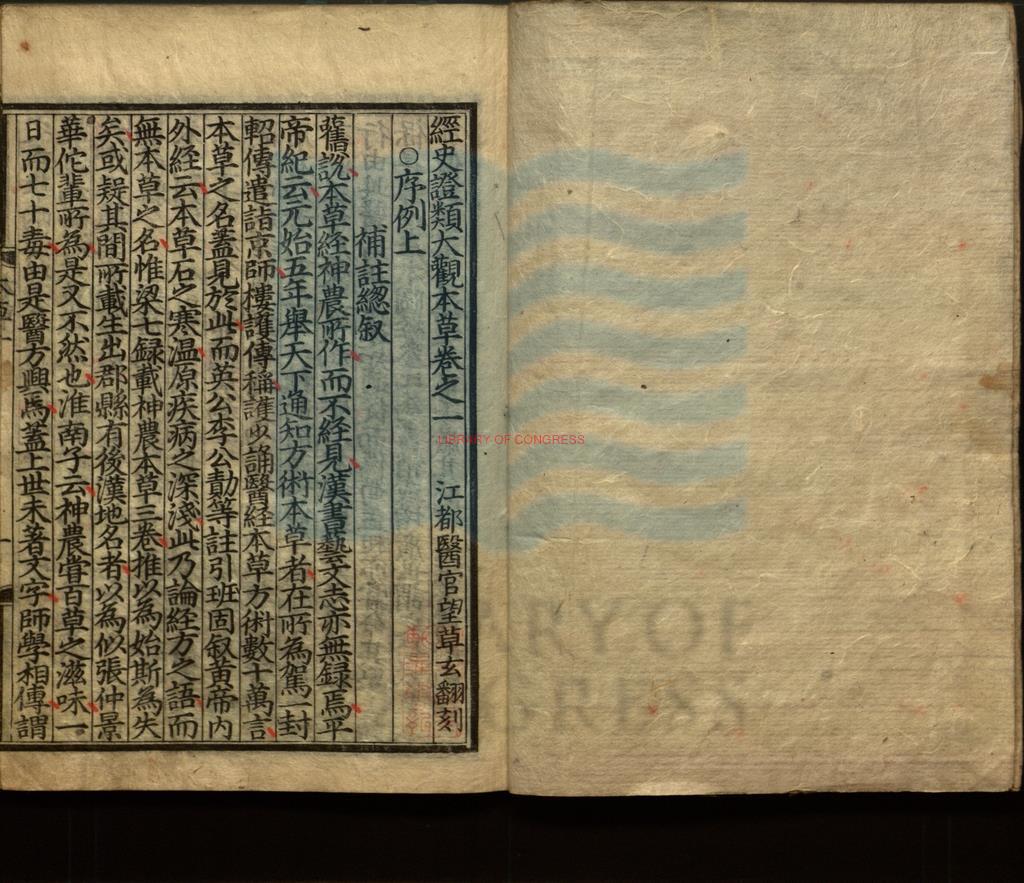 經史證類大觀本草卷之一 江都醫官望草玄翻刻
○序例上
補註總叙
舊說本草經神農所作而不經見漢書藝文志亦無錄焉平
帝紀云元始五年舉天下通知方術本草者在所為駕一封
軺傳遣詣京師樓護傳稱護少誦醫經本草方術數十萬言
本草之名蓋見於此而英公李公勣等註引班固叙黃帝內
外經云本草石之寒温原疾病之深淺此乃論經方之語而
無本草之名惟梁七録載神農本草三卷推以為始斯為失
矣或疑其間所載生出郡縣有後漢地名者以為似張仲景
華佗輩所為是又不然也淮南子云神農嘗百草之滋味一
日而七十毒由是醫方興焉蓋上世未著文字師學相傳謂
LIBRARY OF CONGRESS